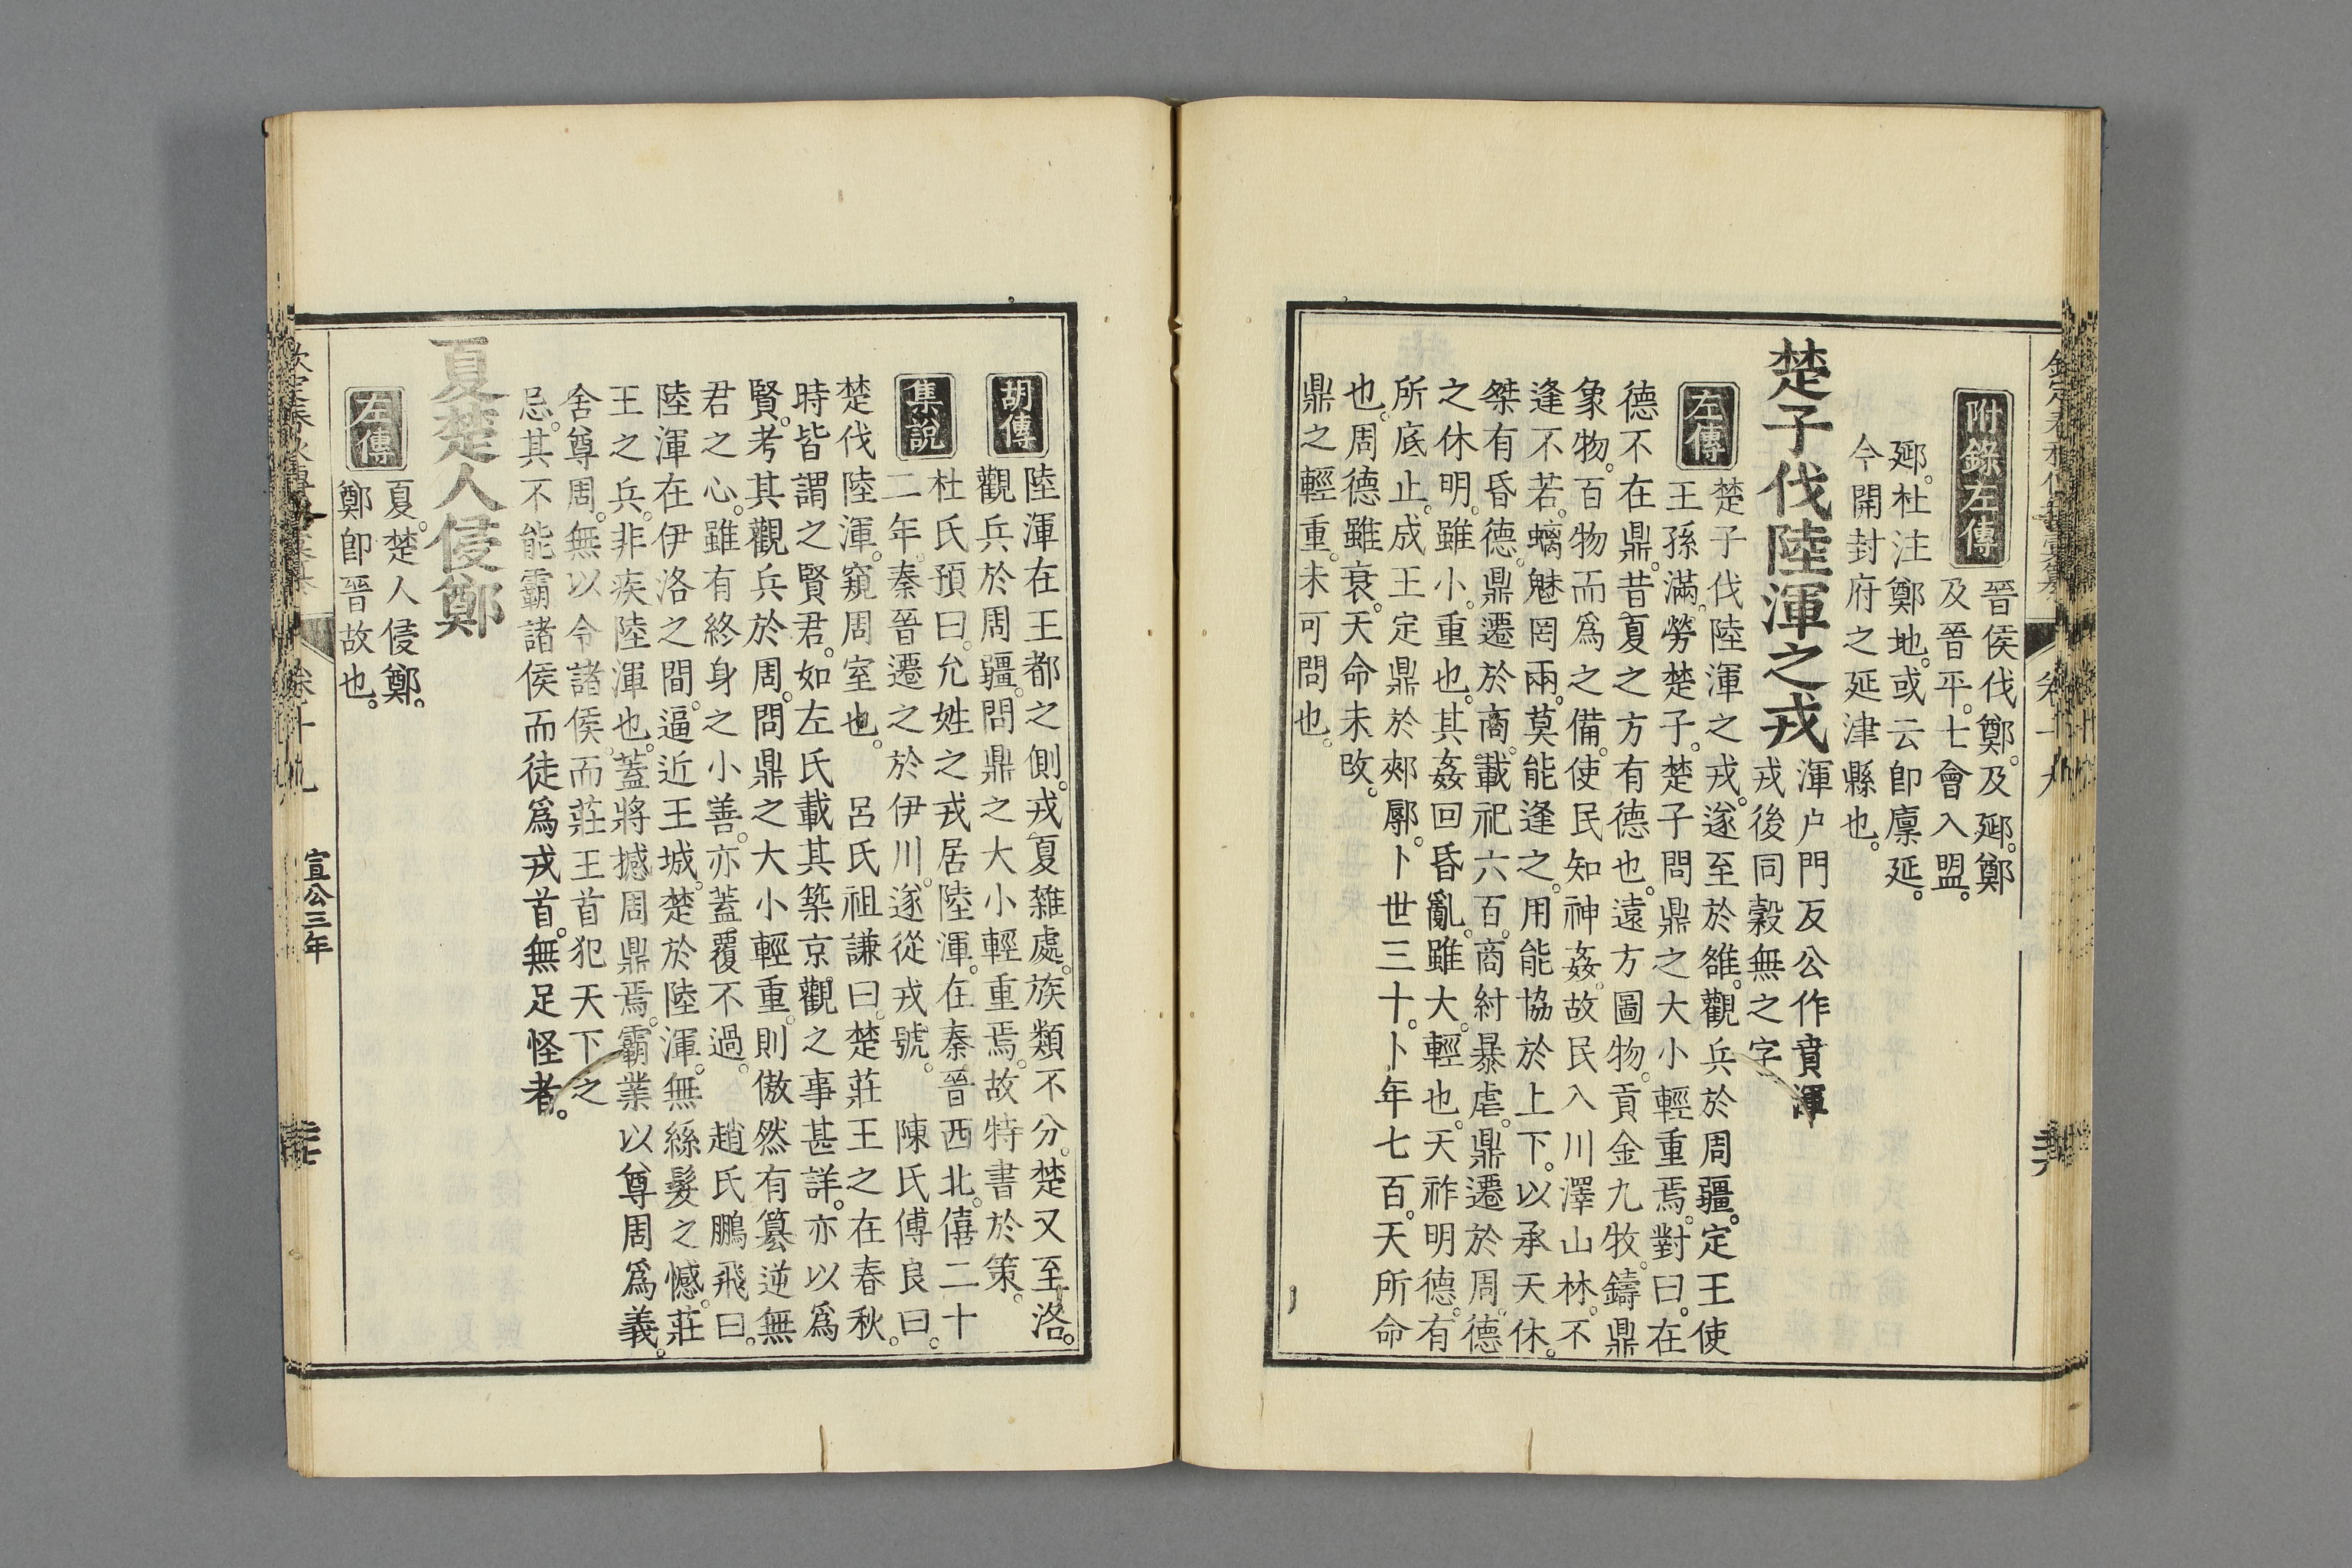 附錄左傳
晉侯伐鄭。及郔。鄭
及晉平。士會入盟。
郔。杜注鄭地。或云卽廪延。
今開封府之延津縣也。
楚子伐陸渾之戎
渾户門反公作賁渾
戎後同穀無之字
左傳
楚子伐陸渾之戎。遂至於雒。觀兵於周疆。定王使
王孫滿。勞楚子。楚子問鼎之大小輕重焉。對曰。在
德不在鼎。昔夏之方有德也。遠方圖物。貢金九牧。鑄鼎
象物。百物而爲之備。使民知神姦。故民入川澤山林。不
逢不若。螭魅罔兩。莫能逢之。用能協於上下。以承天休。
桀有昏德。鼎遷於商。載祀六百。商紂暴虐。鼎遷於周。德
之休明。雖小。重也。其姦回昏亂。雖大。輕也。天祚明德。有
所底止。成王定鼎於郟鄏。卜世三十。卜年七百。天所命
也。周德雖衰。天命未改。
鼎之輕重。未可問也。
胡傳
陸渾在王都之側。戎夏雜處。族類不分。楚又至洛。
觀兵於周疆。問鼎之大小輕重焉。故特書於策。
集說
杜氏預曰。允姓之戎居陸渾。在秦晉西北。僖二十
二年。秦晉遷之於伊川。遂從戎號。 陳氏傅良曰。
楚伐陸渾。窺周室也。 呂氏祖謙曰。楚莊王之在春秋。
時皆謂之賢君。如左氏載其築京觀之事甚詳。亦以爲
賢。考其觀兵於周。問鼎之大小輕重。則傲然有簒逆無
君之心。雖有終身之小善。亦蓋覆不過。 趙氏鵬飛曰。
陸渾在伊洛之間。逼近王城。楚於陸渾。無絲髮之憾。莊
王之兵。非疾陸渾也。蓋將撼周鼎焉。霸業以尊周爲義。
舍尊周。無以令諸侯。而莊王首犯天下之
忌。其不能霸諸侯而徒爲戎首。無足怪者。
夏楚人侵鄭
左傳
夏。楚人侵鄭。
鄭卽晉故也。
宣公三年